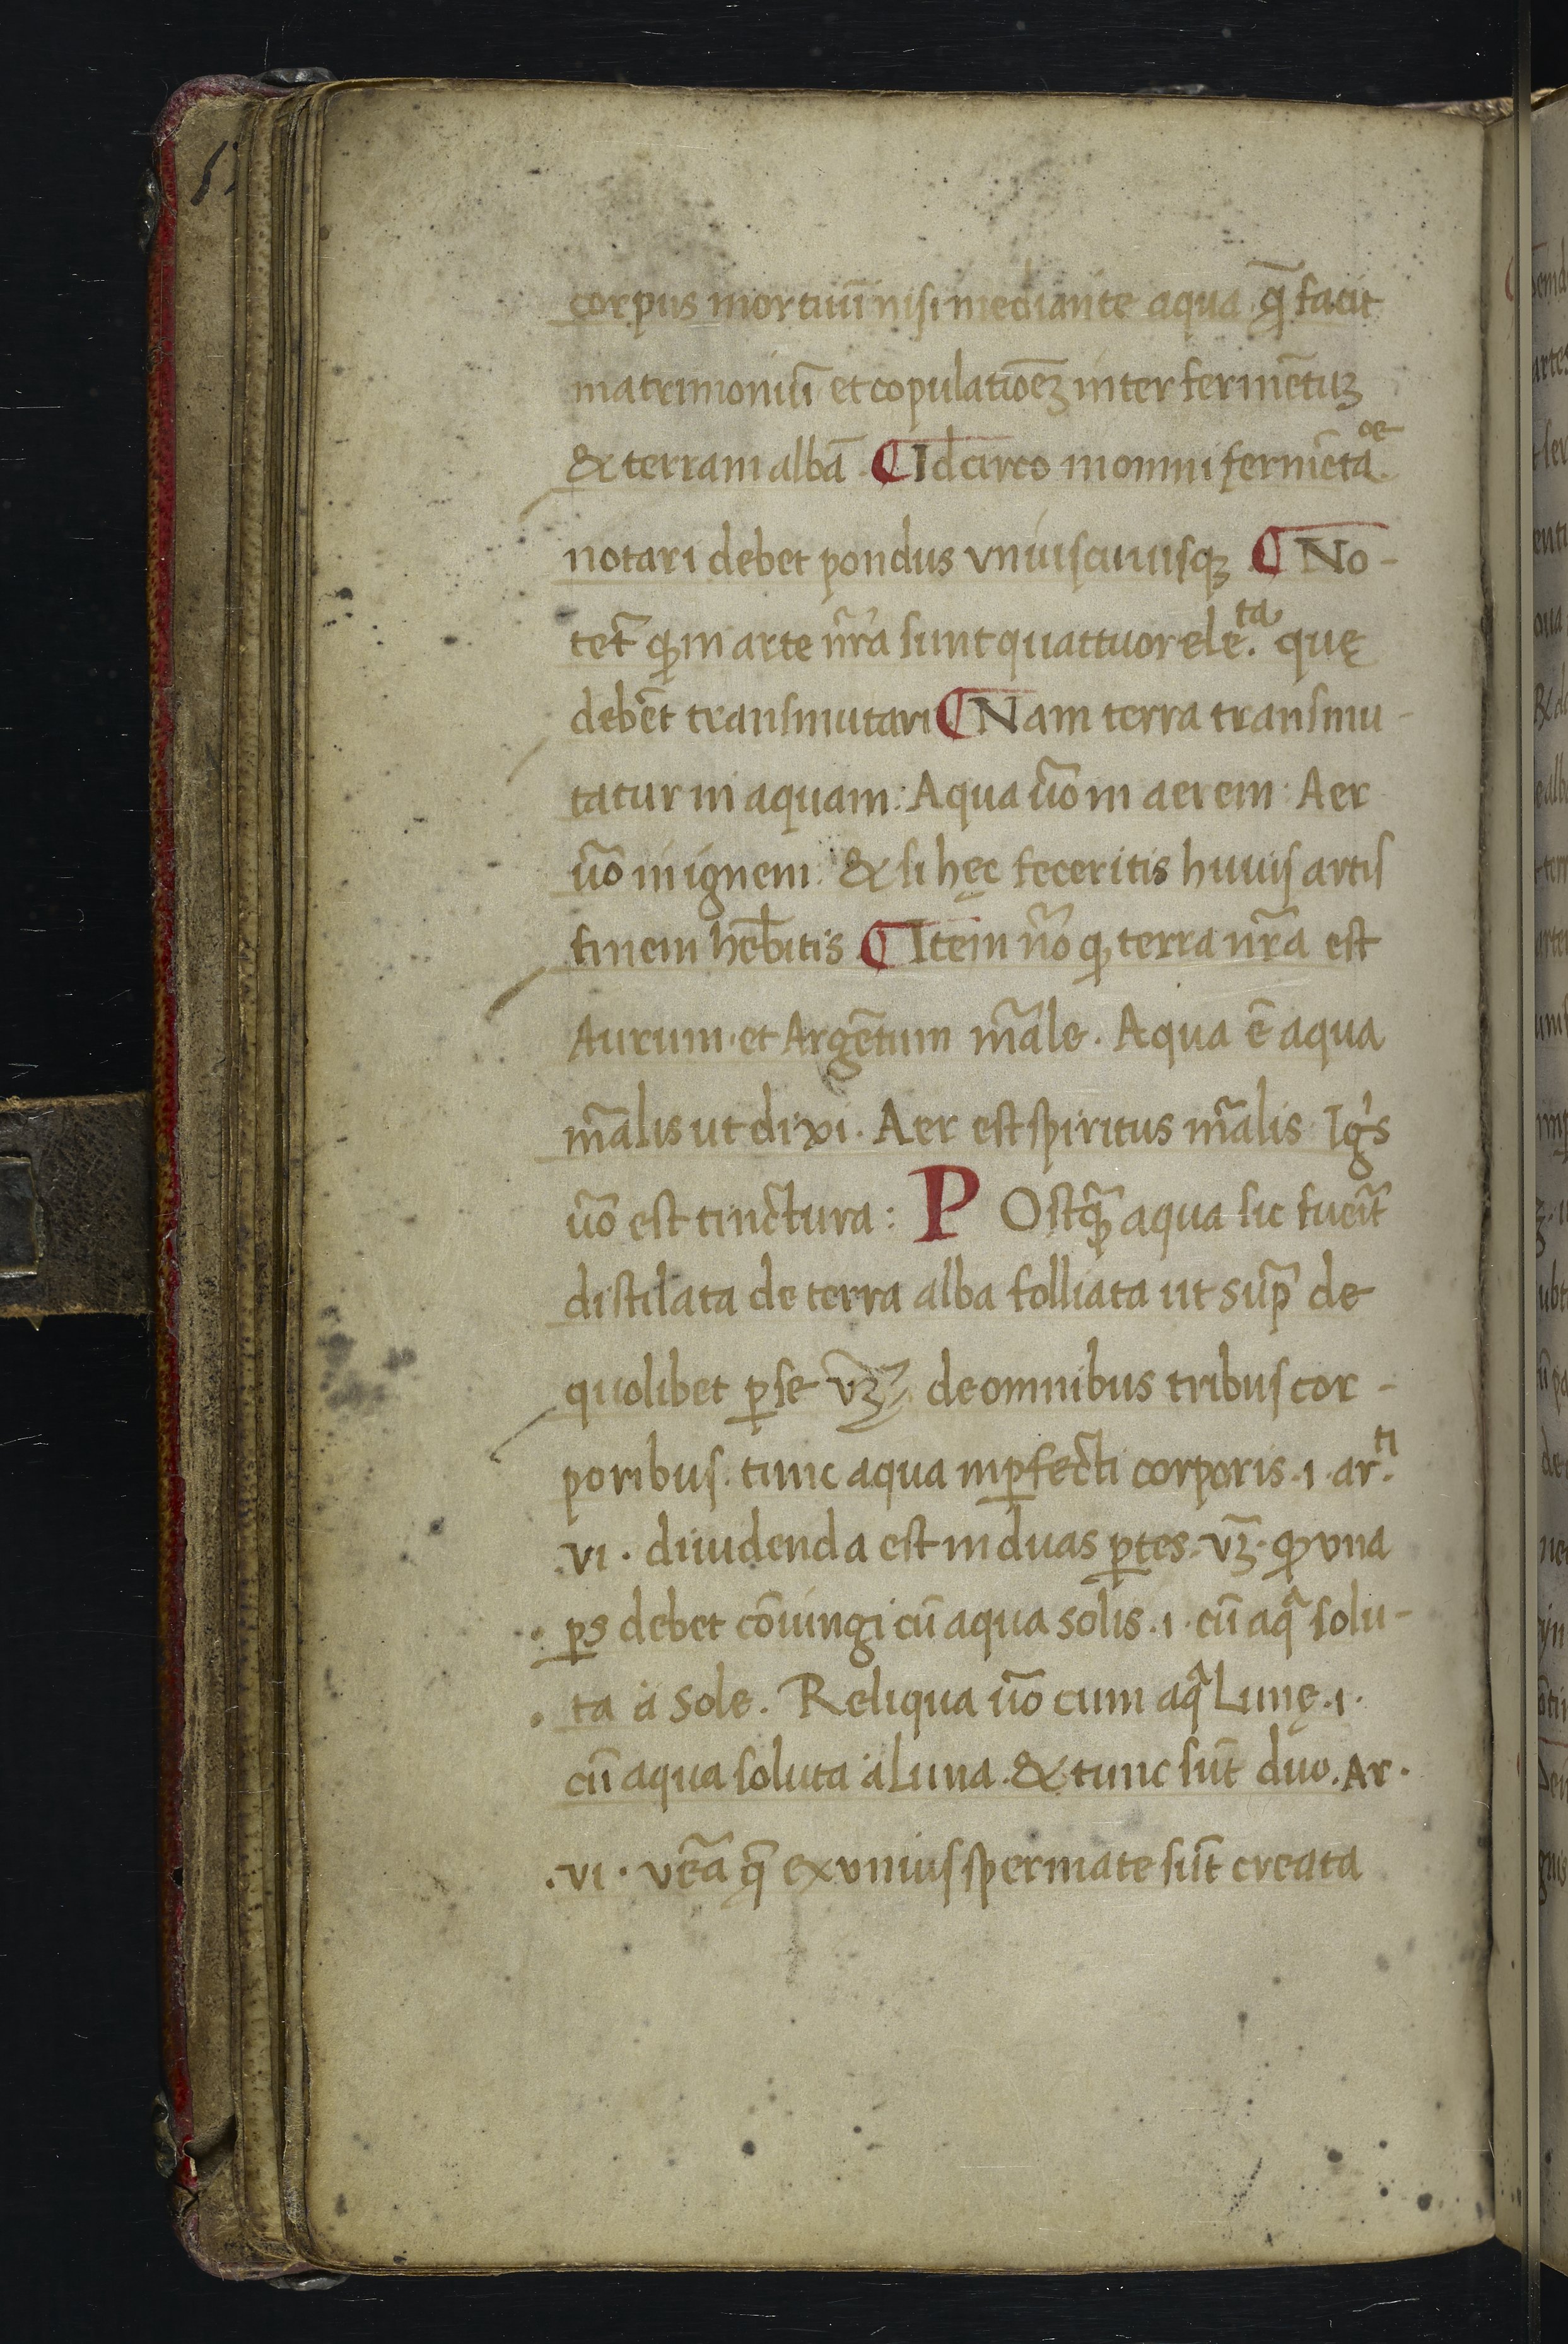 corpus mortuū nisi mediante aqua q̄ facit
matrimoniū et copulatiōeꝫ inter fermētuꝫ
& terram albā. ¶ Idcirco in omni fermētaᵒᵉ.
notari debet pondus vniuscuiusqꝫ ¶ No-
tet̄ ꝙ in arte nr̄a sunt quattuor eleᵗᵃ. quę
debēt transmutari ¶ Nam terra transmu-
tatur in aquam: Aqua ūo in aerem: Aer
ūo in ignem: & si hęc feceritis huius artis
finem hēbitis ¶ Item nō ꝙ terra nr̄a est
Aurum et Argētum m̄ale. Aqua ē aqua
m̄alis ut dixi. Aer est spiritus m̄alis Ig's
ūo est tinctura: P Ostꝙ̄ aqua sic fuerit̄
distilata de terra alba folliata ut sup̄ de
quolibet ꝑ se vꝫ de omnibus tribus cor-
poribus. tunc aqua inꝑfecti corporis .i. arᵗⁱ.
.vi. diuidenda est in duas ꝑtes. vꝫ. ꝙ vna
ꝑs debet cōiungi cū aqua solis .i. cū aq̄ solu-
ta à sole. Reliqua ūo cum aq̄ Lunę .i.
cū aqua soluta à Luna. & tunc sūt duo. Ar.
.vi. vēa q̄ ex vnius spermate sūt creata